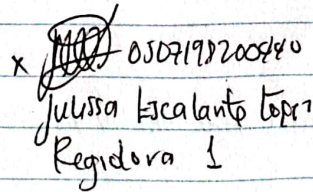 x 0507198200440
Julissa Escalante Lopez
Regidora 1